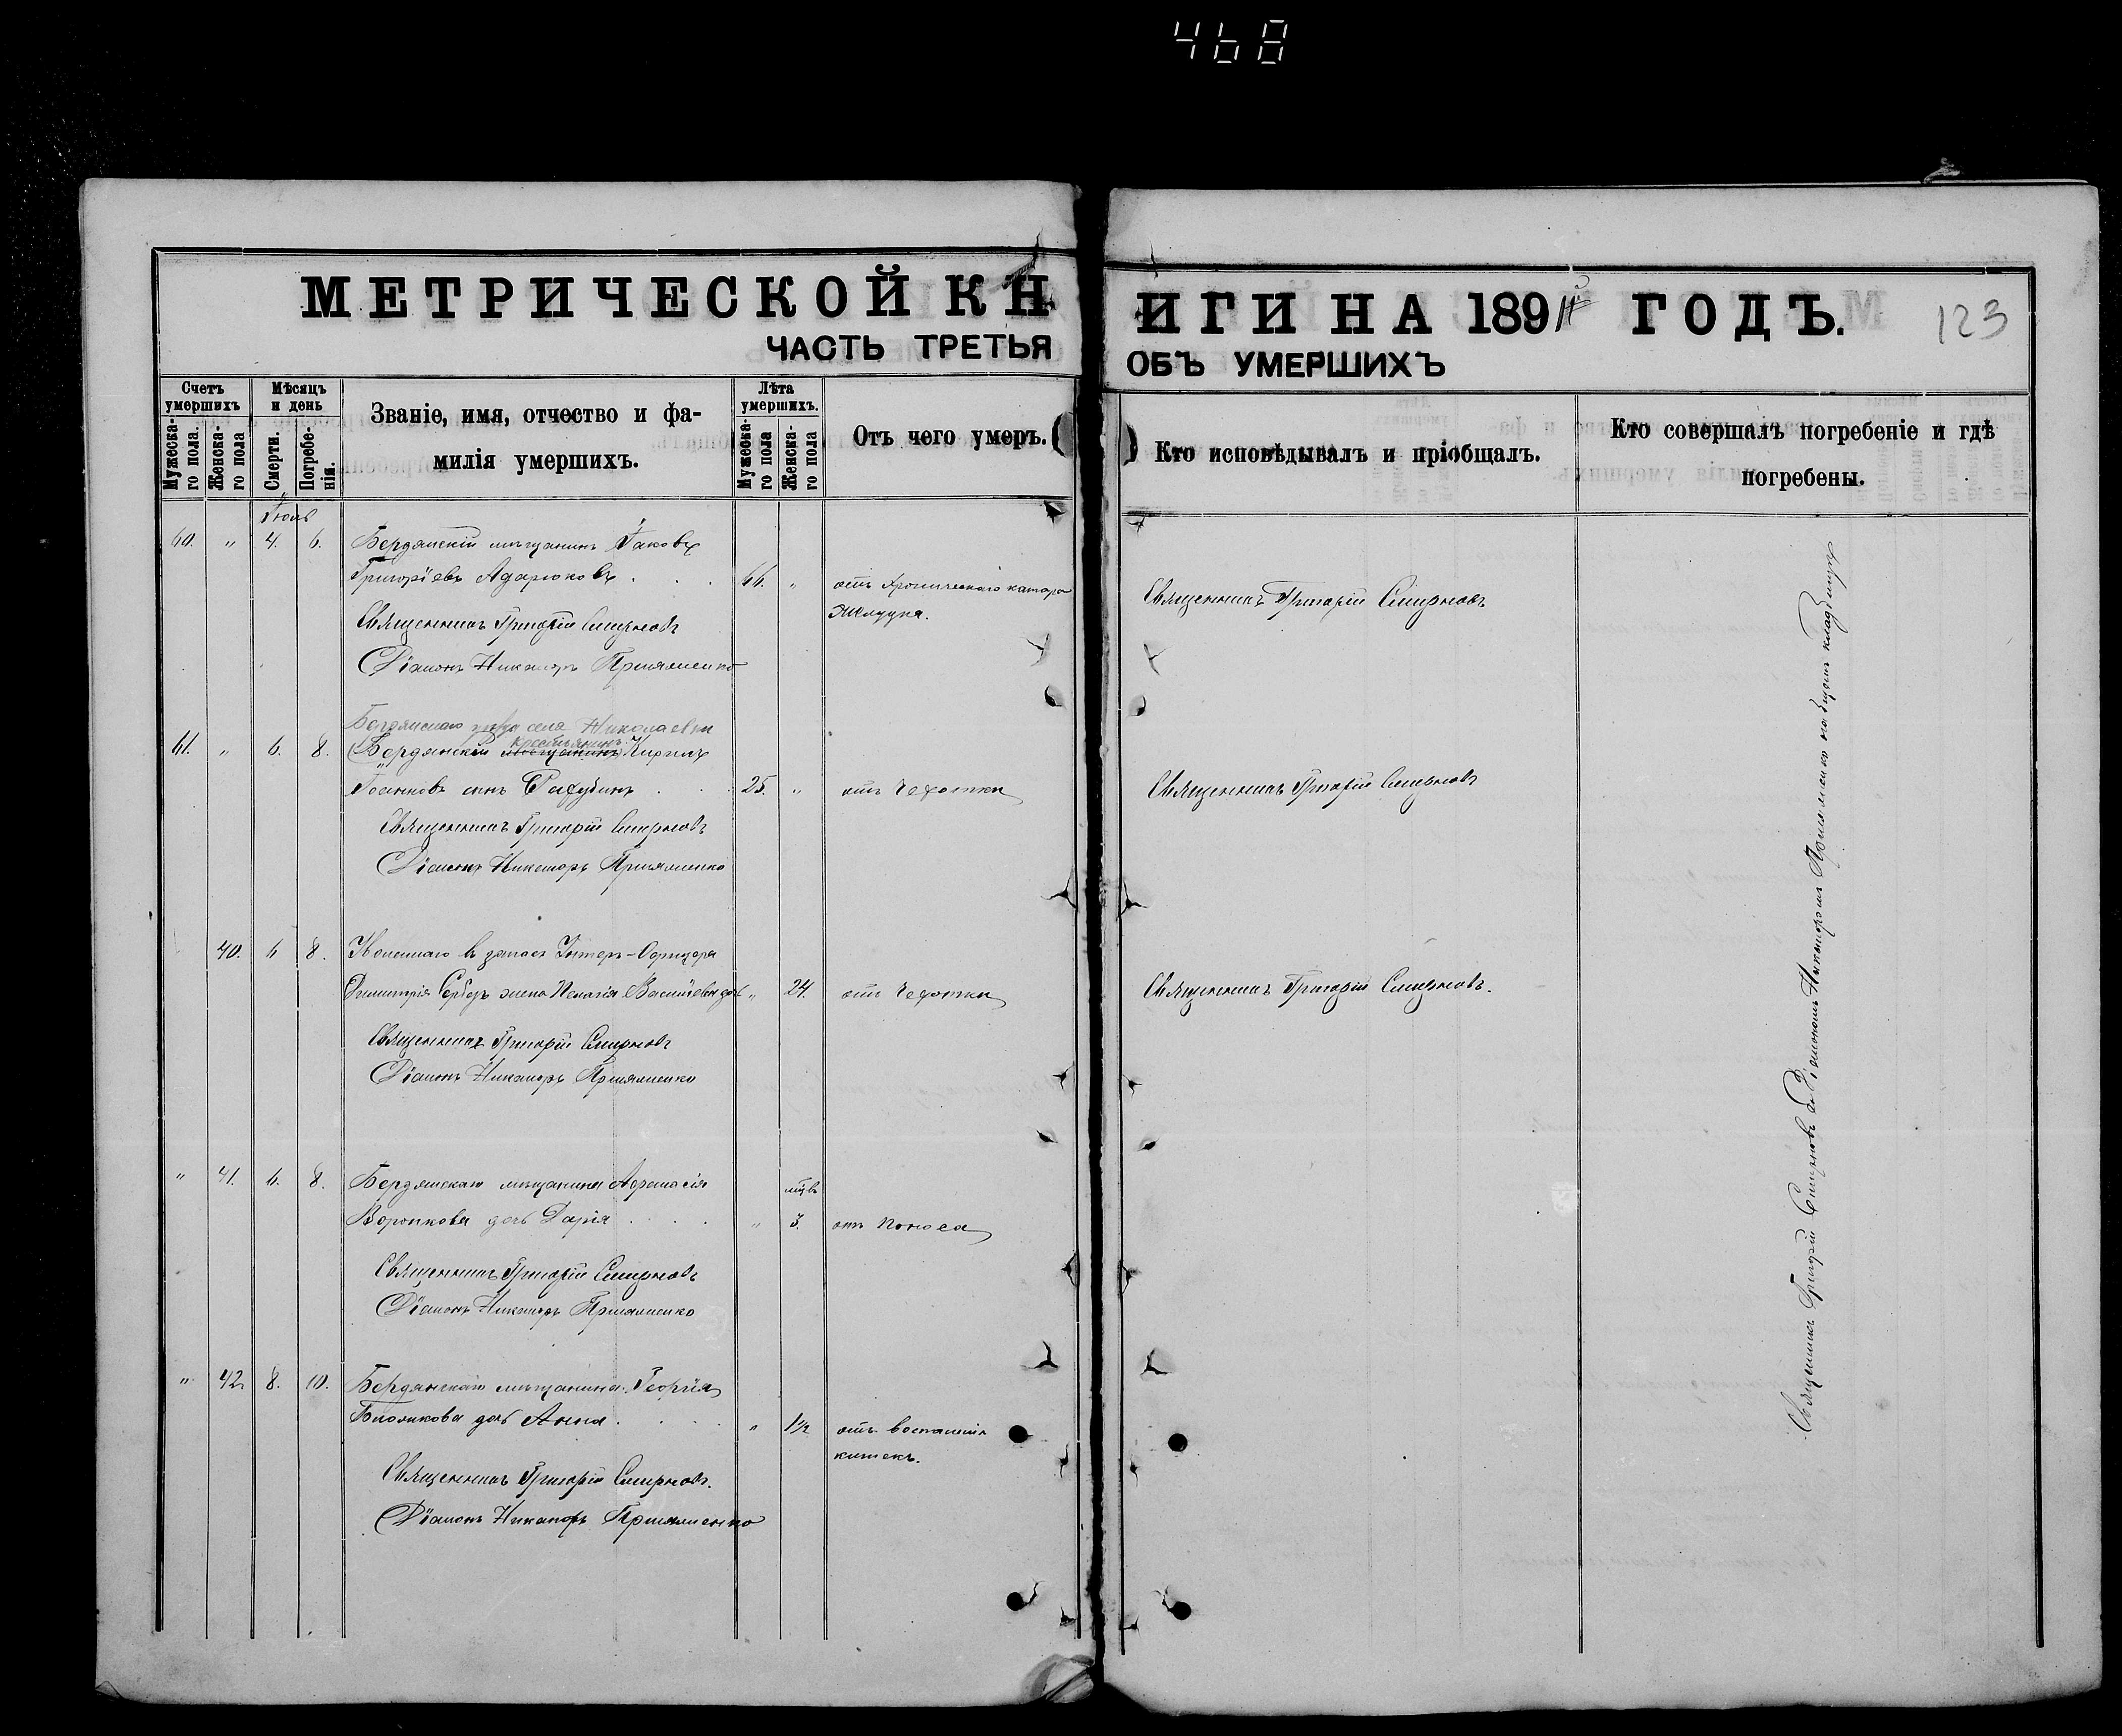 468
МЕТРИЧЕСКОЙ КНИГИ НА 189 ГОДЪ.
123
ЧАСТЬ ТРЕТЬЯ ОБЪ УМЕРШИХЪ
Счетъ умершихъ
Мужеска-го пола.
Женска-го пола
Мѣсяцъ и день
Смерти.
Погребе-нія.
Званіе, имя, отчество и фа-
милія умершихъ.
Лѣта умершихъ.
Мужеска-го пола
Женска-го пола
Отъ чего умеръ.
Кто исповѣдывалъ и пріобщалъ.
Кто совершалъ погребеніе и гдѣ
погребены.
Іюль
60. " 4. 6. Бердянскій мѣщанинъ Іаковъ
Григорьевъ Адарюковъ . . . 66. " отъ Хроническаго катара
Желудка.
Священникъ Григорій Смирновъ
Священникъ Григорій Смирновъ
Діаконъ Никаноръ Пришляменко
Бердянскаго уѣзда села Николаевки
61. " 6. 8. (Бердянскій мѣщанинъ) крестьянинъ Кириллъ
Іоанновъ сынъ 25. " отъ Чахотки
Священникъ Григорій Смирновъ
Священникъ Григорій Смирновъ
Діаконъ Никаноръ
40. 6 8. в запасъ Унтеръ-Офицера
Димитрія Сербъ жена Пелагія Васильева " 24. отъ Чахотки
Священникъ Григорій Смирновъ.
Священникъ Григорій Смирновъ
Діаконъ Никаноръ
" 41. 6. 8. Бердянскаго мѣщанина Афанасія
Воронкова дочь Дарія . . . . " 3. отъ Поноса
Священникъ Григорій Смирновъ
Діаконъ Никаноръ
" 42 8. 10. Бердянскаго мѣщанина Георгія
дочь Анна . . . . " 1½ отъ воспаленія
кишекъ.
Священникъ Григорій Смирновъ.
Діаконъ Никаноръ
Священникъ Григорій Смирновъ съ Діакономъ Никаноромъ на общемъ кладбищѣ